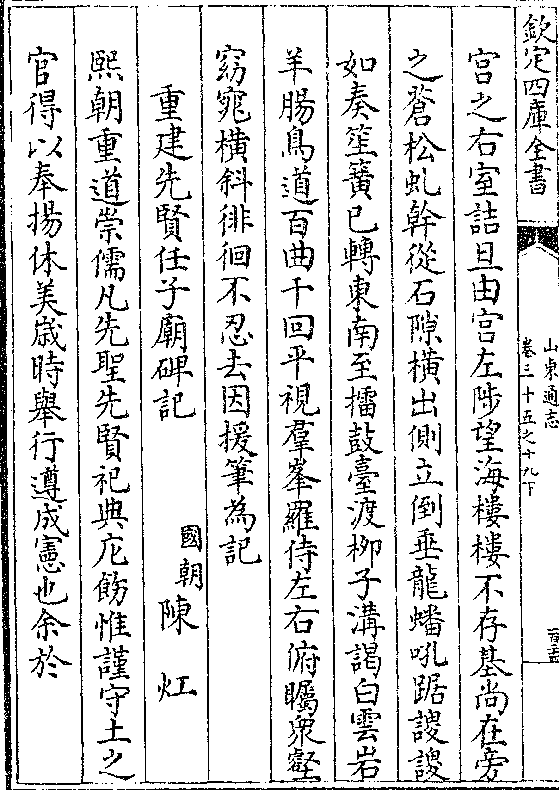 欽定四庫全書
山東通志
卷三十五之十九下
宫之右室詰旦由宫左陟望海樓樓不存基尚在旁
之蒼松虬幹從石隙橫出側立倒垂龍蟠吼踞謖謖
如奏笙簧已轉東南至擂鼓臺渡栁子溝謁白雲岩
羊腸鳥道百曲千回平視羣峯羅侍左右俯矚衆壑
窈窕橫斜徘徊不忍去因援筆為記
重建先賢任子廟碑記
國朝陳 灴
熙朝重道崇儒凡先聖先賢祀典庀飭惟謹守土之
官得以奉揚休美歳時舉行遵成憲也余於